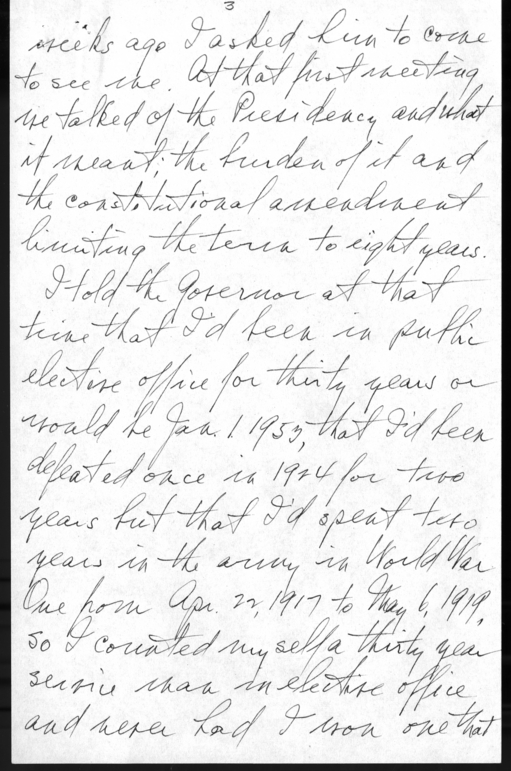 3
weeks ago I asked him to come
to see me. At that first meeting
we talked of the Presidency and what
it meant; the burden of it and
the constitutional amendment
limiting the term to eight years.
I told the Governor at that
time that I'd been in public
elective office for thirty years or
would be Jan. 1. 1953, that I'd been
defeated once in 1924 for two
years but that I'd spent two
years in the army in World War
One from Apr. 22, 1917 to May 6, 1919,
so I counted myself a thirty year
service man in elective office
and never had I won one that